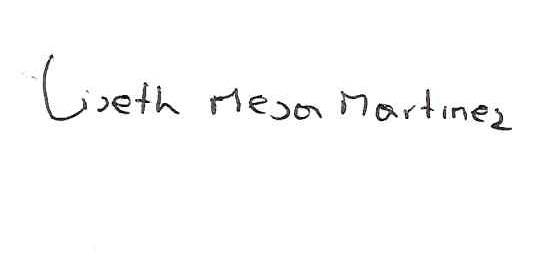 Liseth Mesa Martinez